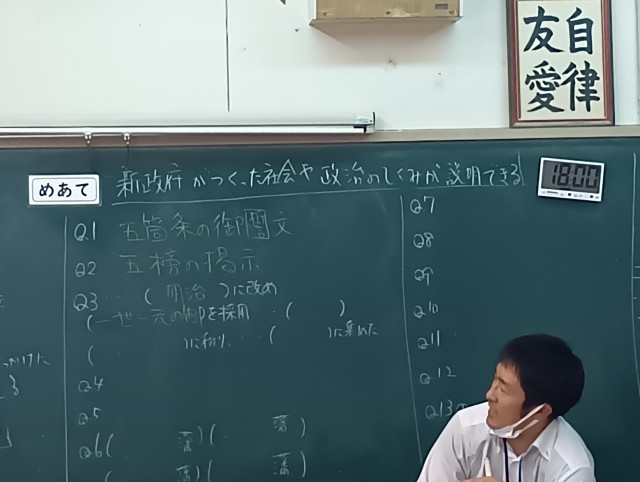 自律
友愛
めあて
新政府がつくった社会や政治のしくみが説明できる
18:00
Q1 五箇条の御誓文
Q2 五榜の掲示
Q3 … ( 明治 )に改め
(一世一元の制)を採用 ( )
( )に移り… ( )に集めた
Q4
Q5
Q6 ( 藩) ( 藩)
( 藩) ( 藩)
Q7
Q8
Q9
Q10
Q11
Q12
Q13